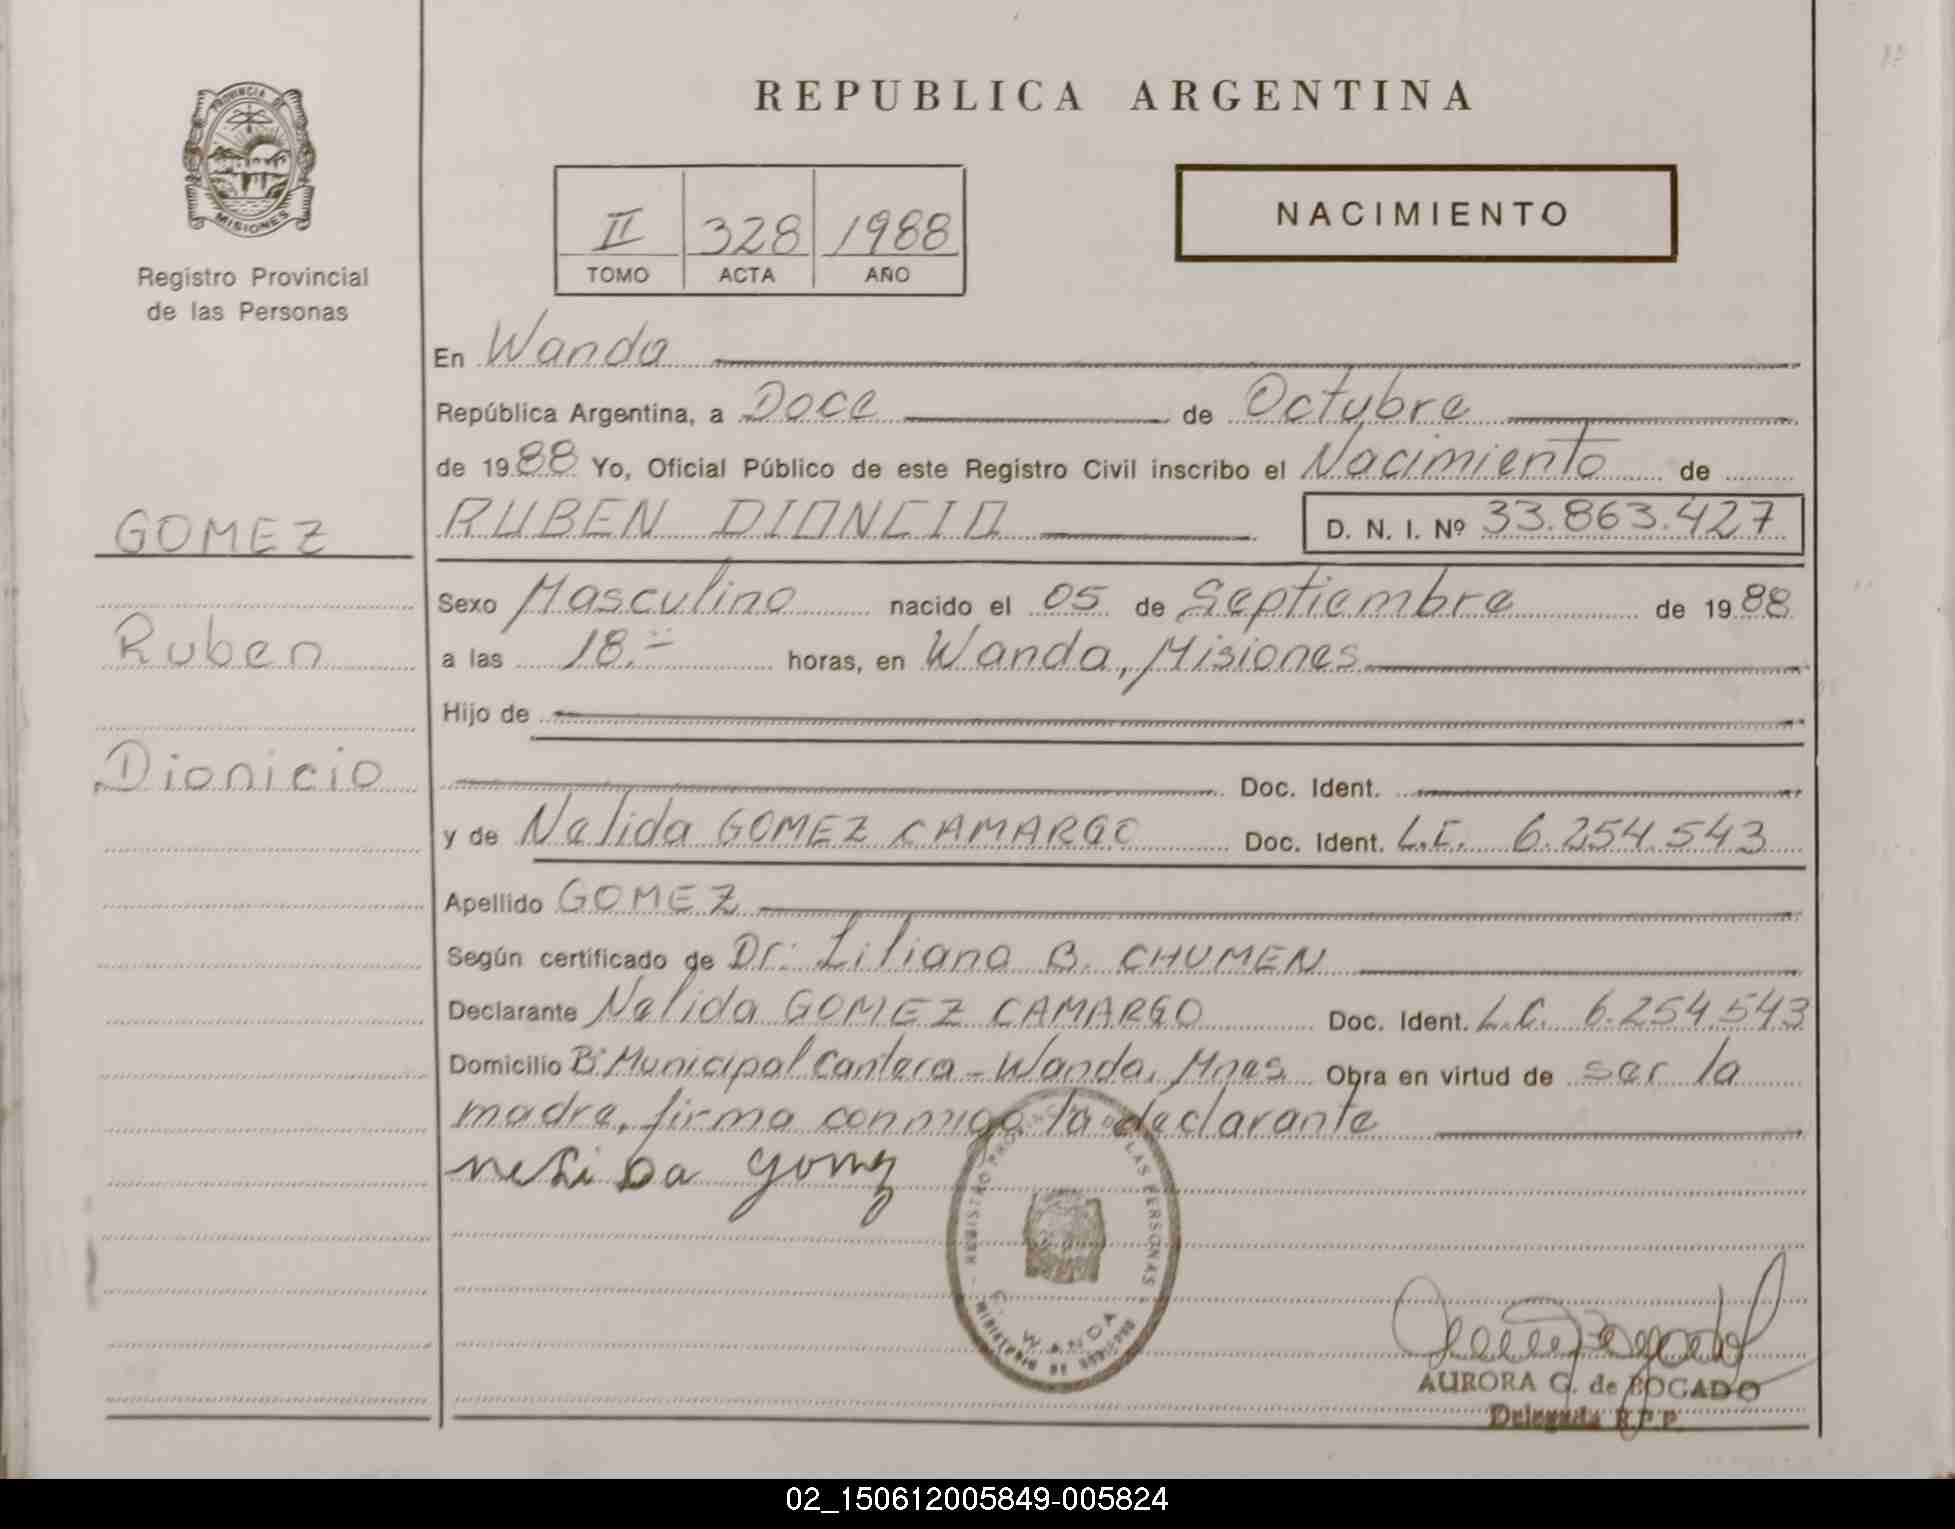 PROVINCIA DE
MISIONES
Registro Provincial
de las Personas
REPUBLICA ARGENTINA
II 328 1988
TOMO ACTA AÑO
NACIMIENTO
En Wanda
República Argentina, a Doce de Octubre
de 1988 Yo, Oficial Público de este Registro Civil inscribo el Nacimiento de
GOMEZ
RUBEN DIONCIO D. N. I. Nº 33.863.427
Sexo Masculino nacido el 05 de Septiembre de 1988
Ruben
a las 18.= horas, en Wanda, Misiones
Hijo de
Dionicio
Doc. Ident.
y de Nelida GOMEZ CAMARGO Doc. Ident. L.C. 6.254.543
Apellido GOMEZ
Según certificado de Dr: Liliana B. CHUMEN
Declarante Nelida GOMEZ CAMARGO Doc. Ident. L.C. 6.254.543
Domicilio Bº Municipal Cantera - Wanda, Mnes Obra en virtud de ser la
madre, firma conmigo la declarante
neliDa gomez
REGISTRO PROVINCIAL DE LAS PERSONAS
WANDA
MINISTERIO DE GOBIERNO
AURORA G. de BOGADO
Delegada R.P.P.
02_150612005849-005824